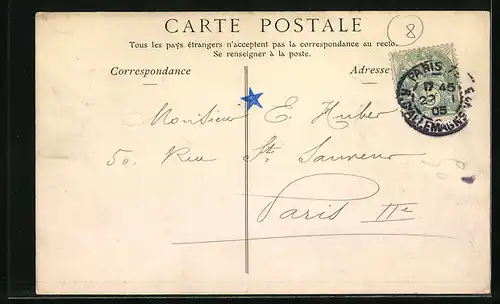 CARTE POSTALE
8
Tous les pays étrangers n'acceptent pas la correspondance au recto.
Se renseigner à la poste.
Correspondance
Adresse
PARIS
17 45
1
05
ALLEMAGNE
Monsieur E. Huber
50. Rue St. Sauveur
Paris IIe